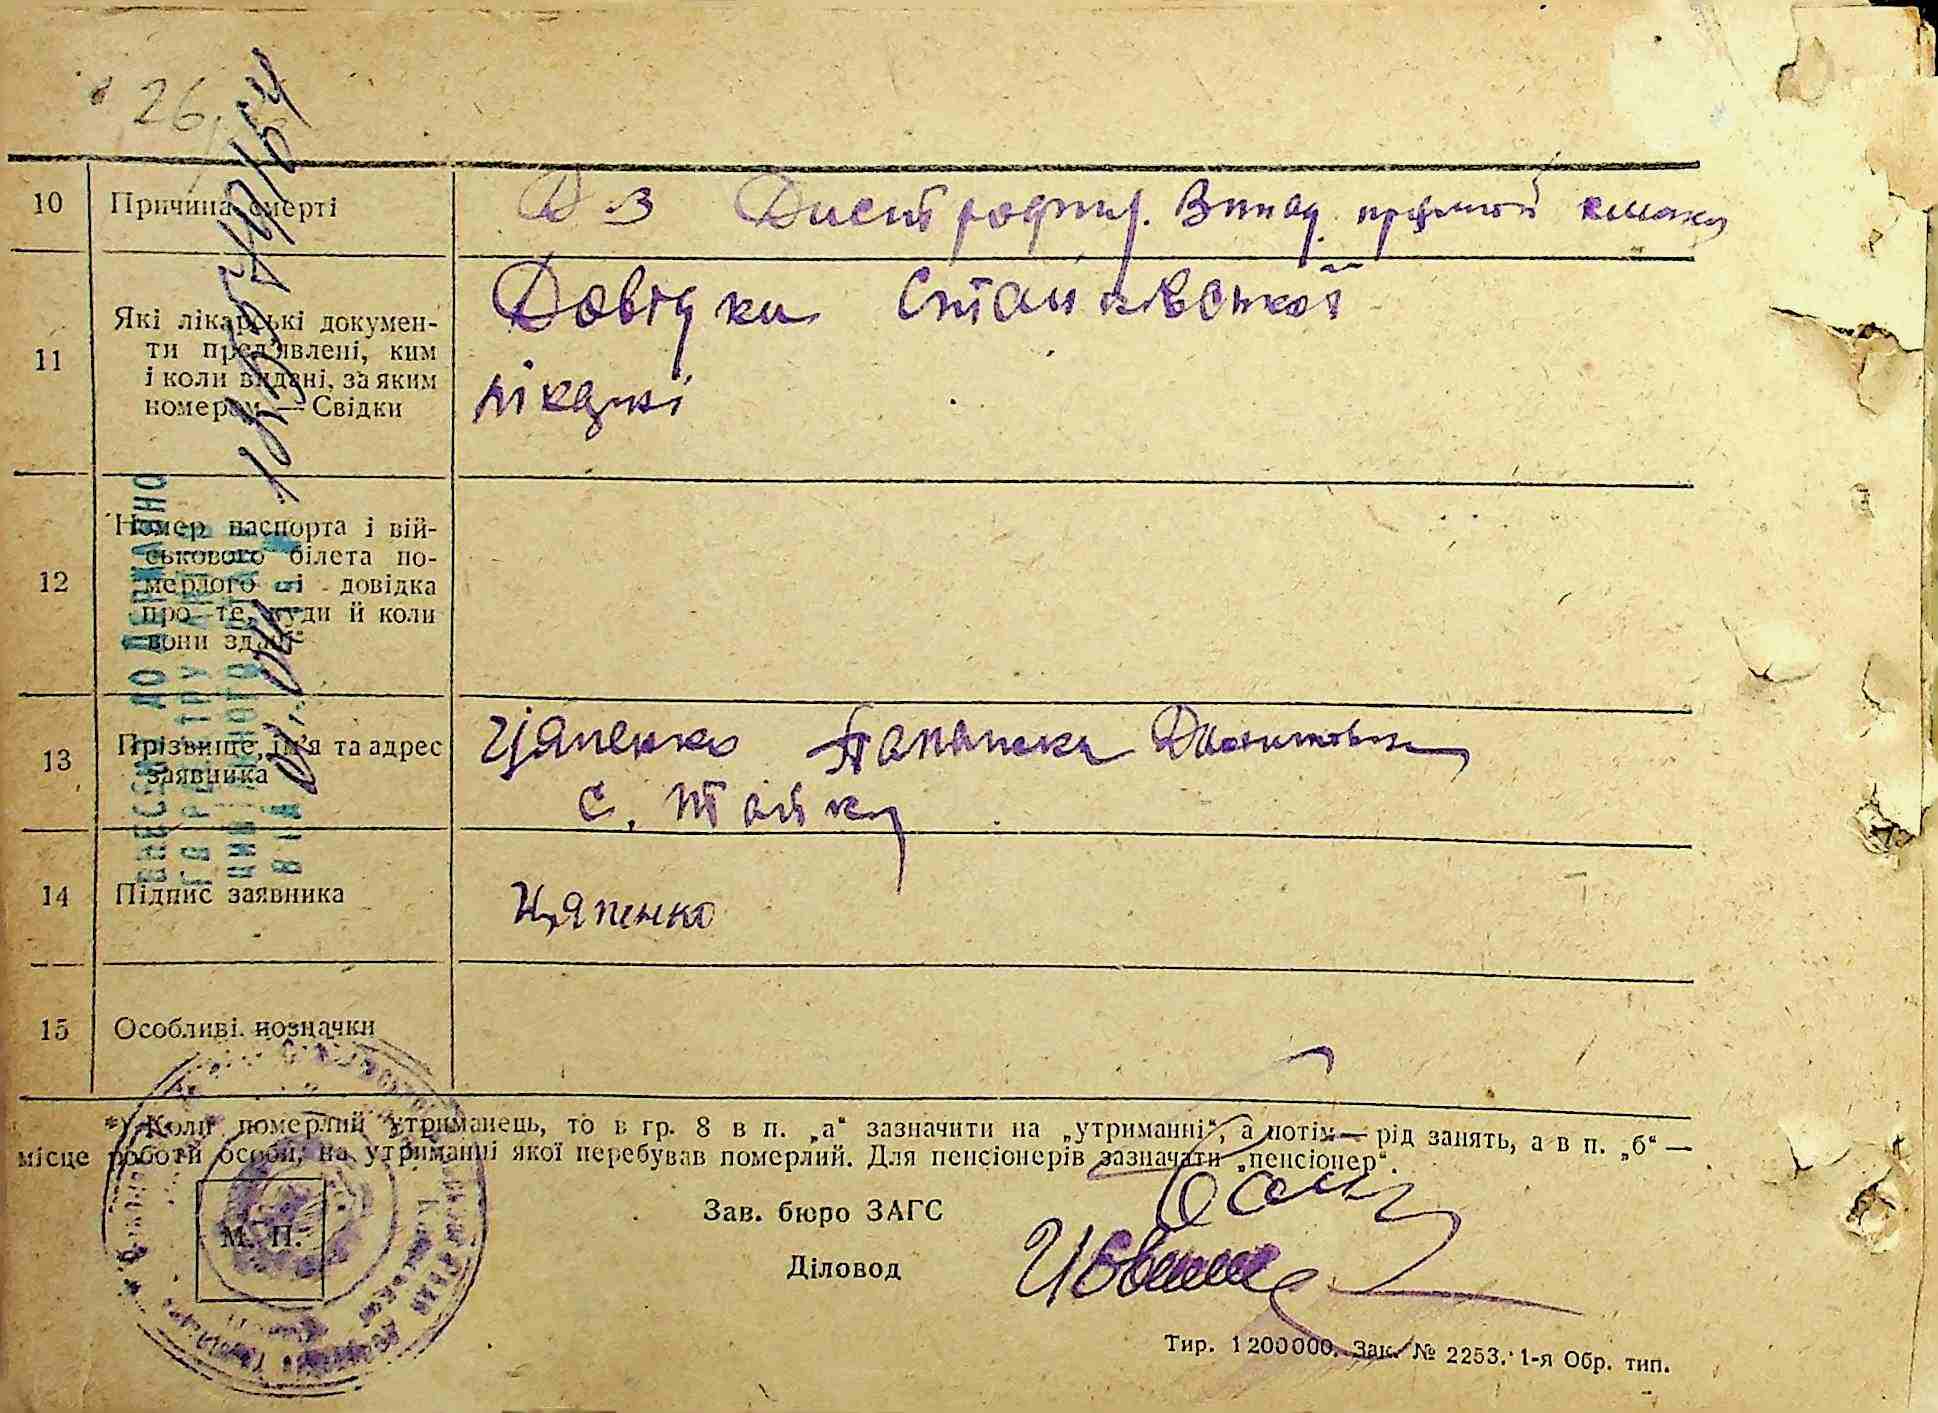 26
10 Причина смерті Д-з Дистрофия. Випад. прямой кишки
11 Які лікарські докумен-
ти пред'явлені, ким
і коли видані, за яким
номером — Свідки
Довідки Стайківської
лікарні
12 Номер паспорта і вій-
ськового білета по-
мерлого і довідка
про те, куди й коли
вони здані"
13 Прізвище, ім'я та адрес
заявника
Цяпенко
с. Стайки
14 Підпис заявника Цяпенко
15 Особливі позначки
*) Коли померлий утриманець, то в гр. 8 в п. „а" зазначити на „утриманні", а потім — рід занять, а в п. „б" —
місце роботи особи, на утриманні якої перебував померлий. Для пенсіонерів зазначати „пенсіонер".
М. П.
Зав. бюро ЗАГС
Діловод
Тир. 1200000. Зак. № 2253. 1-я Обр. тип.
ВНЕСЕНО ДО ДЕРЖАВНО
ГО РЕЄСТРУ АКТІВ
ЦИВІЛЬНОГО СТАНУ